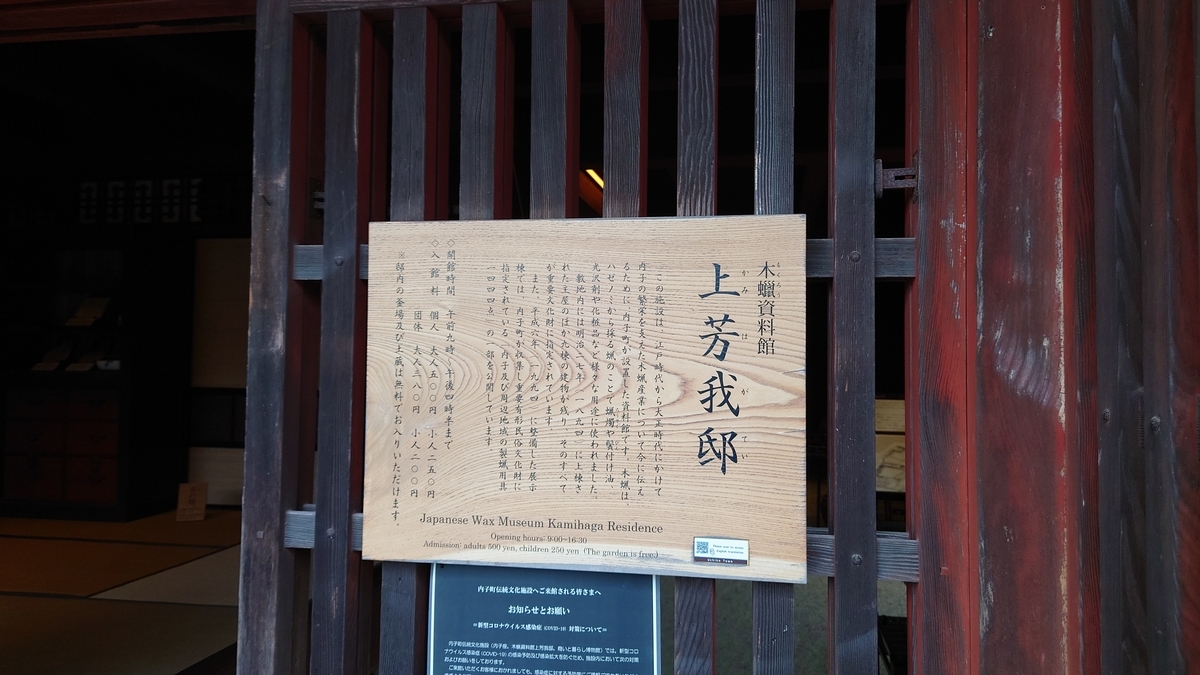 木蠟資料館
もくろう
上芳我邸
かみはがてい
この施設は、江戸時代から大正時代にかけて
内子の繁栄を支えた木蠟産業について今に伝え
るために、内子町が設置した資料館です。木蠟は、
ハゼノミから採る蠟のことで蠟燭や鬢付け油、
光沢剤や化粧品など様々な用途に使われました。
敷地内には明治二七年（一八九四）に上棟さ
れた主屋のほか九棟の建物が残り、そのすべて
が重要文化財に指定されています。
また、平成六年（一九九四）に整備した展示
棟では、内子町が収集し重要有形民俗文化財に
指定されている「内子及び周辺地域の製蠟用具
一四四四点」の一部を公開しています。
◇開館時間　午前九時〜午後四時半まで
◇入館料　個人　大人五〇〇円　小人二五〇円
団体　大人三八〇円　小人二〇〇円
※邸内の釜場及び土蔵は無料でお入りいただけます。
Japanese Wax Museum Kamihaga Residence
Opening hours: 9:00~16:30
Admission: adults 500 yen, children 250 yen (The garden is free.)
Uchiko Town
内子町伝統文化施設へご来館される皆さまへ
お知らせとお願い
=新型コロナウイルス感染症 (COVID-19) 対策について=
内子町伝統文化施設（内子座、木蝋資料館上芳我邸、商いと暮らし博物館）では、新型コロ
ナウイルス感染症(COVID-19)の感染予防及び感染拡大を防ぐため、施設内において次の対策
およびお願いをしております。